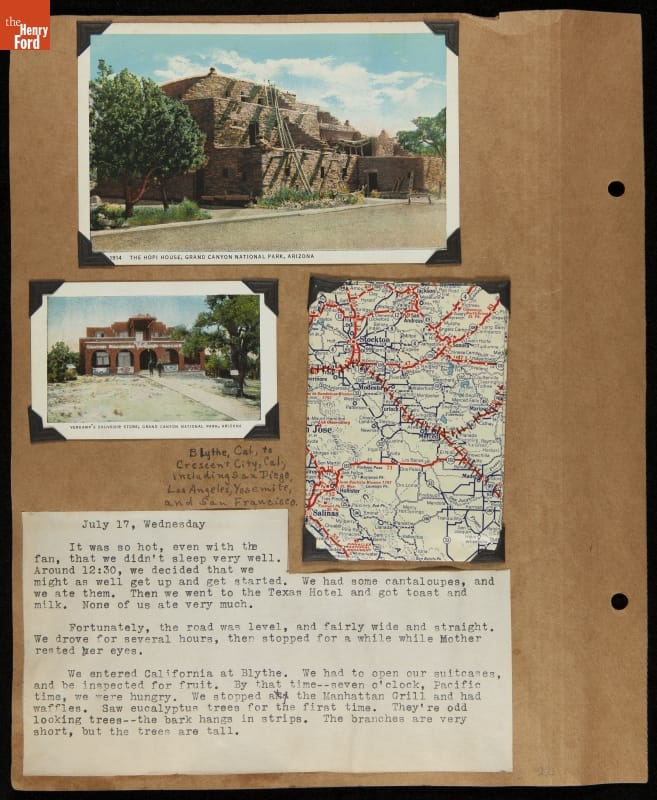 the
Henry
Ford
1914 THE HOPI HOUSE, GRAND CANYON NATIONAL PARK, ARIZONA
VERKAMP'S SOUVENIR STORE, GRAND CANYON NATIONAL PARK, ARIZONA
Stockton
Modesto
Jose
Salinas
Hollister
Blythe, Cal, to
Crescent City, Cal,
including San Diego,
Los Angeles, Yosemite,
and San Francisco.
July 17, Wednesday
It was so hot, even with the
fan, that we didn't sleep very well.
Around 12:30, we decided that we
might as well get up and get started. We had some cantaloupes, and
we ate them. Then we went to the Texas Hotel and got toast and
milk. None of us ate very much.
Fortunately, the road was level, and fairly wide and straight.
We drove for several hours, then stopped for a while while Mother
rested her eyes.
We entered California at Blythe. We had to open our suitcases,
and be inspected for fruit. By that time--seven o'clock, Pacific
time, we were hungry. We stopped at the Manhattan Grill and had
waffles. Saw eucalyptus trees for the first time. They're odd
looking trees--the bark hangs in strips. The branches are very
short, but the trees are tall.